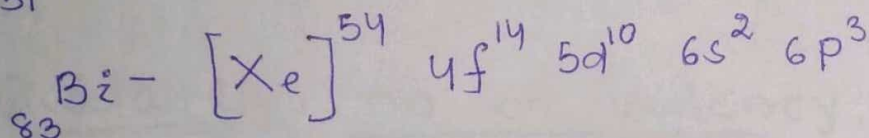 ₈₃Bi - [Xe]⁵⁴ 4f¹⁴ 5d¹⁰ 6s² 6p³